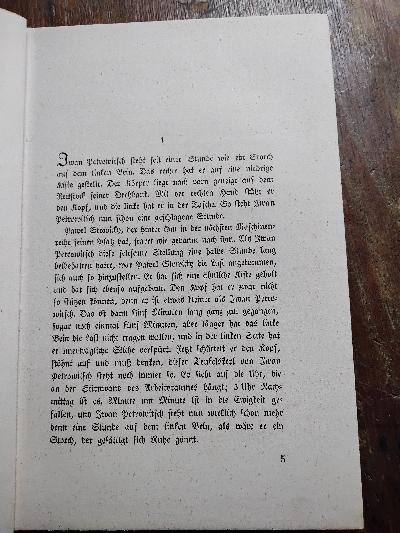 1
Iwan Petrowitsch steht seit einer Stunde wie ein Storch
auf dem linken Bein. Das rechte hat er auf eine niedrige
Kiste gestellt. Der Körper liegt nach vorn geneigt auf dem
Reitstock seiner Drehbank. Mit der rechten Hand stützt er
den Kopf, und die linke hat er in der Tasche. So steht Iwan
Petrowitsch nun schon eine geschlagene Stunde.
Pawel Slowitzky, der hinter ihm in der nächsten Maschinen-
reihe seinen Platz hat, starrt wie gebannt nach ihm. Als Iwan
Petrowitsch diese seltsame Stellung eine halbe Stunde lang
beibehalten hatte, war Pawel Slowitzky die Lust angekommen,
sich auch so hinzustellen. Er hat sich eine ähnliche Kiste geholt
und hat sich ebenso aufgebaut. Den Kopf hat er zwar nicht
so stützen können, denn er ist etwas kleiner als Iwan Petro-
witsch. Das ist dann fünf Minuten lang ganz gut gegangen,
sogar noch einmal fünf Minuten, aber länger hat das linke
Bein die Last nicht tragen wollen, und in der linken Seite hat
er unerträgliche Stiche verspürt. Jetzt schüttelt er den Kopf,
stöhnt auf und muß denken, dieser Teufelskerl von Iwan
Petrowitsch steht noch immer so. Er sieht auf die Uhr, die
an der Stirnwand des Arbeitsraumes hängt; 3 Uhr Nach-
mittag ist es. Minute um Minute ist in die Ewigkeit ge-
fallen, und Iwan Petrowitsch steht nun wirklich schon mehr
denn eine Stunde auf dem linken Bein, als wäre er ein
Storch, der gesättigt sich Ruhe gönnt.
5